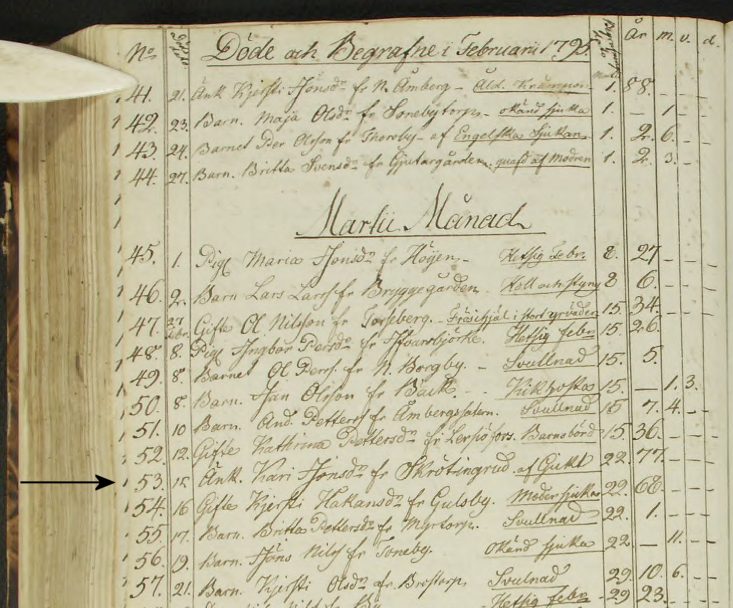 No Döde och Begrafne i Februarii 1795. År m. v. d.
41. 21. Änk Kjersti Jonsdr fr N. Åmberg - Åld. 1. 88. - - -
42. 23. Barn. Maja Olsdr fr Sonebytorp - okänd sjuka 1. - 1 - -
43 24. Barnet Per Olsson fr Thoreby - af Engelska Sjukan 1. 2. 6. - -
44. 27. Barn. Britta Svensdr fr Gjutaregården. qvafd af Modren 1. 2. 3. - -
Martii Månad
45. 1. Pig Maria Jonsdr fr Höijen. - Hetsig Febr. 8. 27 - - -
46. 2. Barn Lars Larss fr Bryggegården. Håll och styng 8 6. - - -
47. 27 Gifte Ol Nilsson fr Torsberg. - i stort 15. 34. - - -
48. 8. Pig Ingbor Persdr fr Hetsig febr 15 26. - - -
49. 8. Barnet Ol Perss fr N. Borgby. - Svullnad 15. 5. - - -
50. 8. Barn. Jan Olsson fr Bäck. - - Kikhosta 15. - 1. 3.
51. 10 Barn. And. Petterss fr Åmbergssätern. Svullnad 15 7. 4. - -
52. 12. Gifte Kathrina Pettersdr fr Lersjöfors. Barnsbörd 15. 36. - - -
53. 15 Änk. Kari Jonsdr fr Skrötingrud af Gikt 22. 77. - - -
54. 16 Gifte Kjersti Hakansdr fr Gulsby. Modersjukan 22. 68. - - -
55. 17. Barn. Britta Pettersdr fr Myrtorp. Svullnad 22. 1. - - -
56. 19. Barn. Jöns Nilss fr Soneby. Okänd sjuka 22. - 11. - -
57. 21. Barn. Kjersti Olsdr fr Brotorp. Svulnad 29. 10. 6. - -
Hetsig febr - 29 23. - -